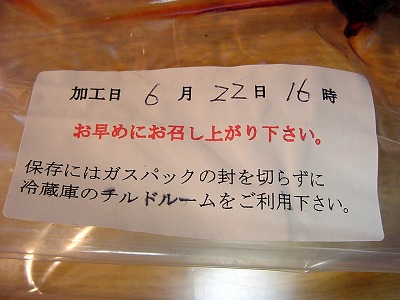 加工日 6 月 22日 16時
お早めにお召し上がり下さい。
保存にはガスパックの封を切らずに
冷蔵庫のチルドルームをご利用下さい。